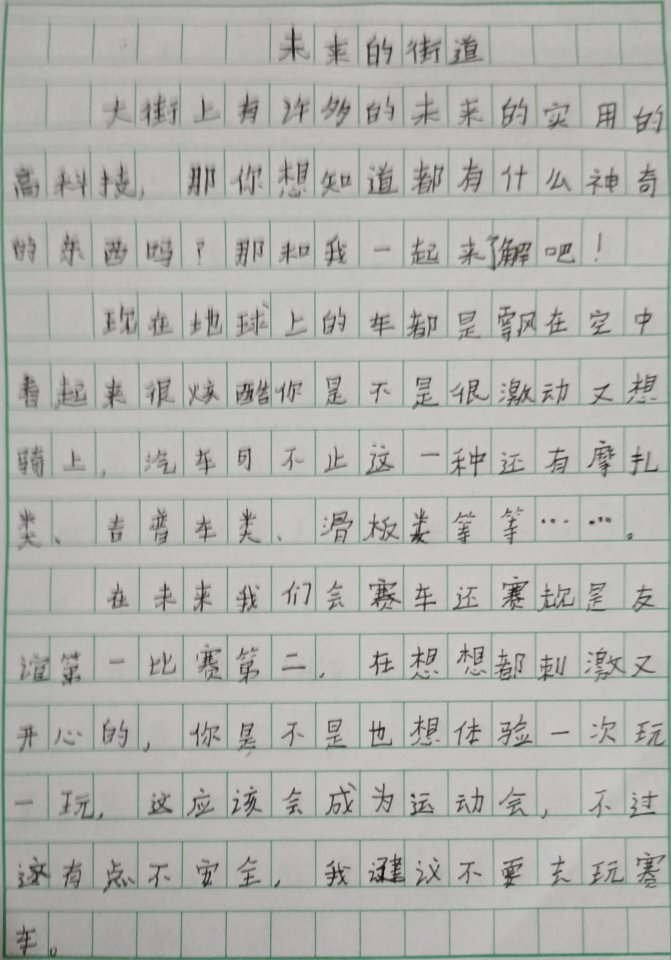 未来的街道
大街上有许多的未来的实用的
高科技，那你想知道都有什么神奇
的东西吗？那和我一起来了解吧！
现在地球上的车都是飘在空中
看起来很炫酷你是不是很激动又想
骑上，汽车可不止这一种还有摩扎
类、吉普车类、滑板娄等等……。
在未来我们会赛车还赛规是友
谊第一比赛第二，在想想都刺激又
开心的，你是不是也想体验一次玩
一玩，这应该会成为运动会，不过
这有点不安全，我建议不要去玩赛
车。